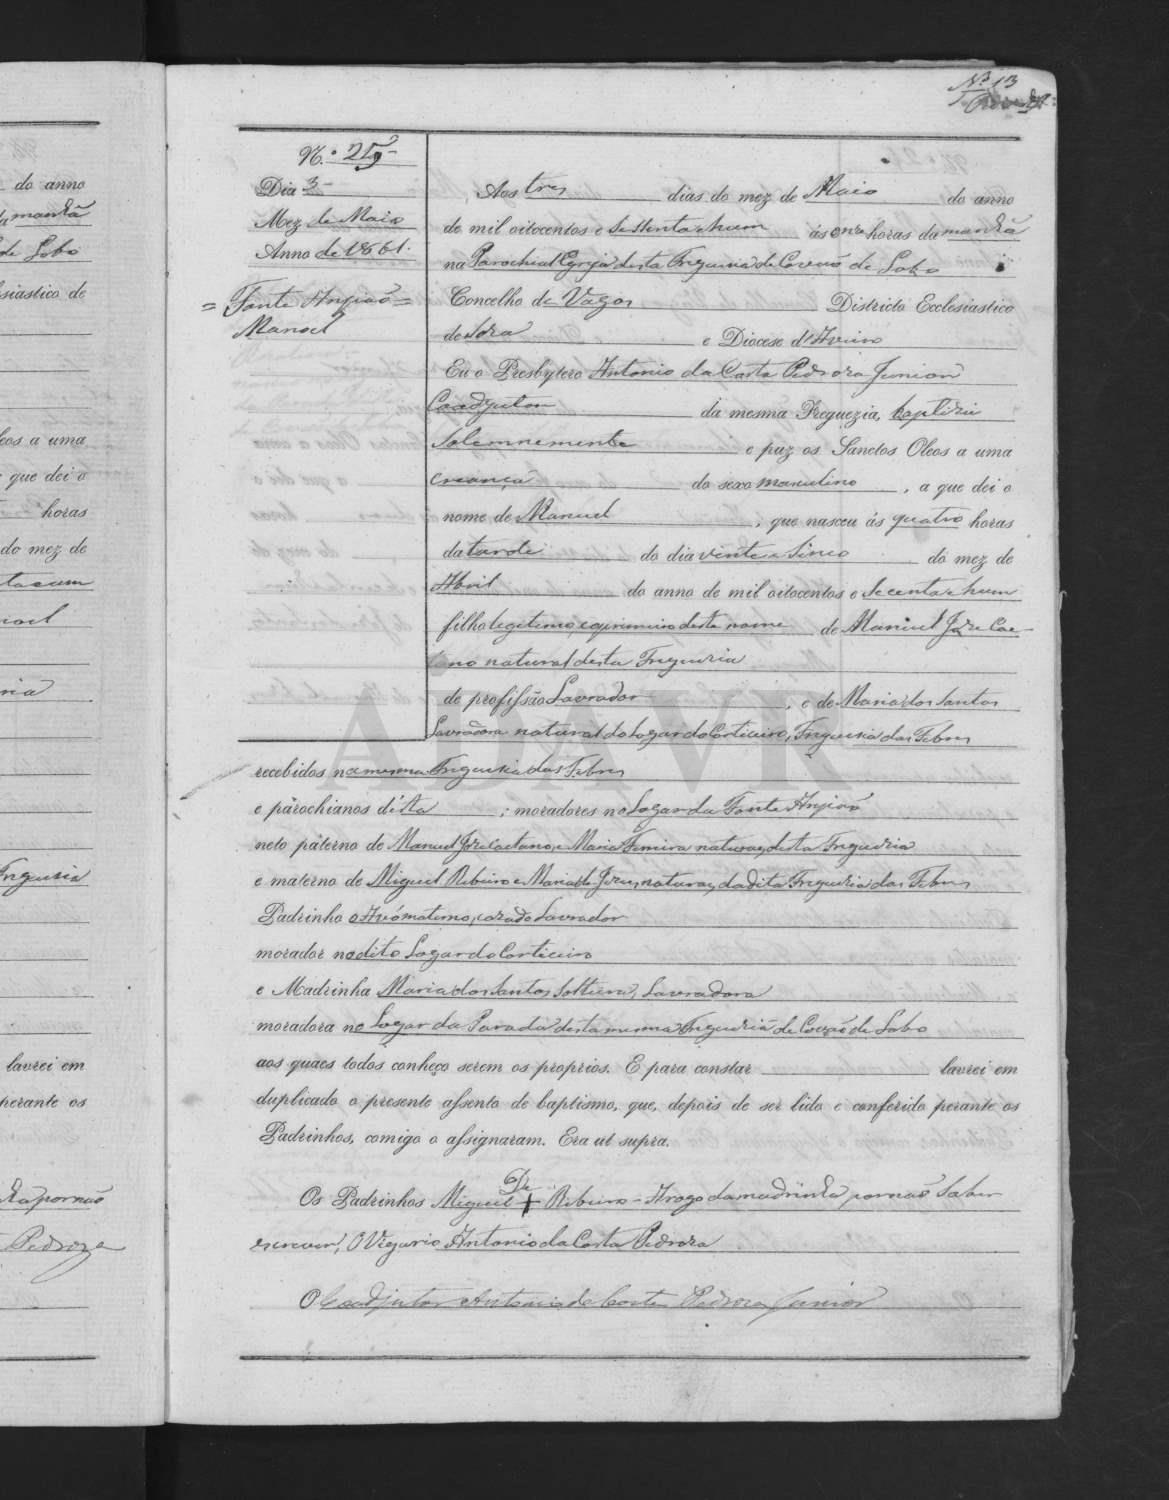 do anno
da manhã
de Lobo
siastico de
eos a uma
que dei o
horas
do mez de
ta e um
noel
ria
Freguesia
lavrei em
perante os
nha por não
Pedroza
Nº 13
N.º 25
Dia 3
Mez de Maio
Anno de 1861.
= Fonte Anjião =
Manoel
Aos tres dias do mez de Maio do anno
de mil oitocentos e Sessenta e hum ás onze horas da manhã
na Parochial Egreja desta Freguesia de Covão de Lobo
Concelho de Vagos Districto Ecclesiastico
de Soza e Diocese d'Aveiro
Eu o Presbytero Antonio da Costa Pedroza Junior
Coadjutor da mesma Freguezia, baptizei
Solemnemente e puz os Sanctos Oleos a uma
creança do sexo masculino, a que dei o
nome de Manuel, que nasceu ás quatro horas
da tarde do dia vinte e Sinco do mez de
Abril do anno de mil oitocentos e Secenta e hum
filho legitimo, e o primeiro deste nome de Manuel Joze Cae-
tano natural desta Freguezia
de profissão Lavrador, e de Maria dos Santos
Lavradora natural do Logar do Corticeiro, Freguezia das Febres
recebidos na mesma Freguezia das Febres
e parochianos désta; moradores no Logar da Fonte Anjião
neto paterno de Manuel Joze Caetano, e Maria Ferreira naturaes desta Freguezia
e materno de Miguel Ribeiro e Maria de Jezus, naturaes da dita Freguezia das Febres
Padrinho o Avó materno, cazado Lavrador
morador no dito Logar do Corticeiro
e Madrinha Maria dos Santos Solteira, Lavradora
moradora no Logar da Parada desta mesma Freguezia de Covão de Lobo
aos quaes todos conheço serem os proprios. E para constar lavrei em
duplicado o presente assento de baptismo, que, depois de ser lido e conferido perante os
Padrinhos, comigo o assignaram. Era ut supra.
Os Padrinhos Miguel De + Ribeiro - A rogo da madrinha por não Saber
escrever, O Vigario Antonio da Costa Pedroza
O Coadjutor Antonio da Costa Pedroza Junior
ADAVR